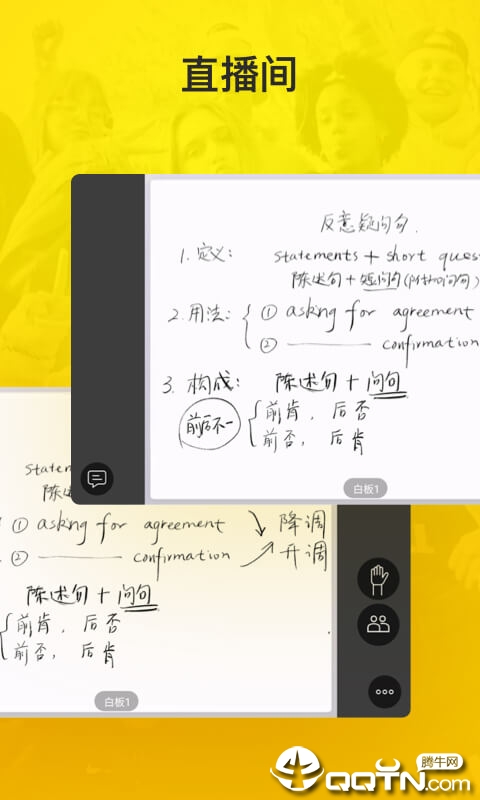 直播间
反意疑问句.
1. 定义: statements + short ques
陈述句 + 短问句(附加问句)
2. 用法: ① asking for agreement
② —— confirmation
3. 构成: 陈述句 + 问句
前后不一
前肯, 后否
前否, 后肯
白板1
statemen
陈述
① asking for agreement 降调
② —— confirmation 升调
陈述句 + 问句
前肯, 后否
前否, 后肯
白板1
腾牛网
QQTN.com